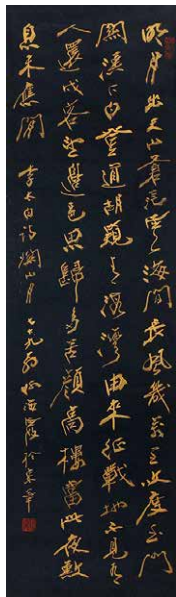 明月出天山蒼茫雲海間長風幾萬里吹度玉門
關漢下白登道胡窺青海灣由來征戰地不見有
人還戍客望邊色思歸多苦顏高樓當此夜歎
息未應閒 李太白詩關山月 七十九翁